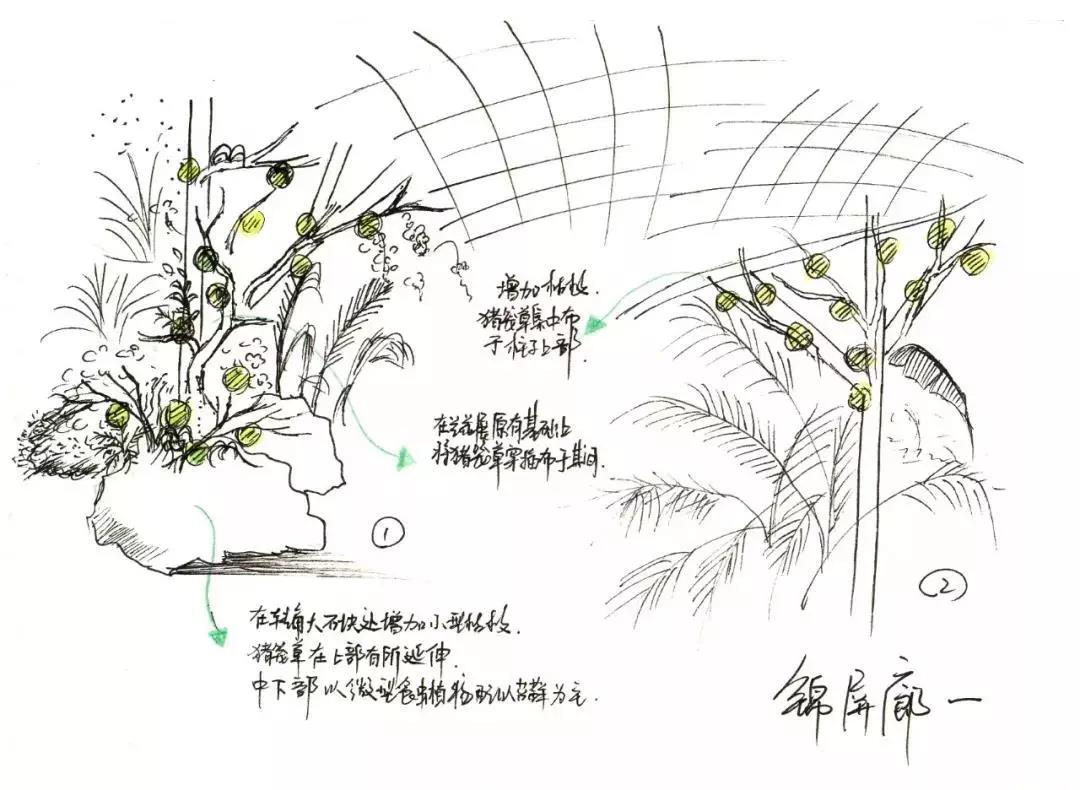 增加枯枝.
猪笼草集中布
于柱子上部.
在兰花展原有基础上
将猪笼草穿插布于其间.
①
在转角大石块处增加小型枯枝.
猪笼草在上部有所延伸.
中下部以微型食虫植物配以苔藓为主.
②
锦屏廊一